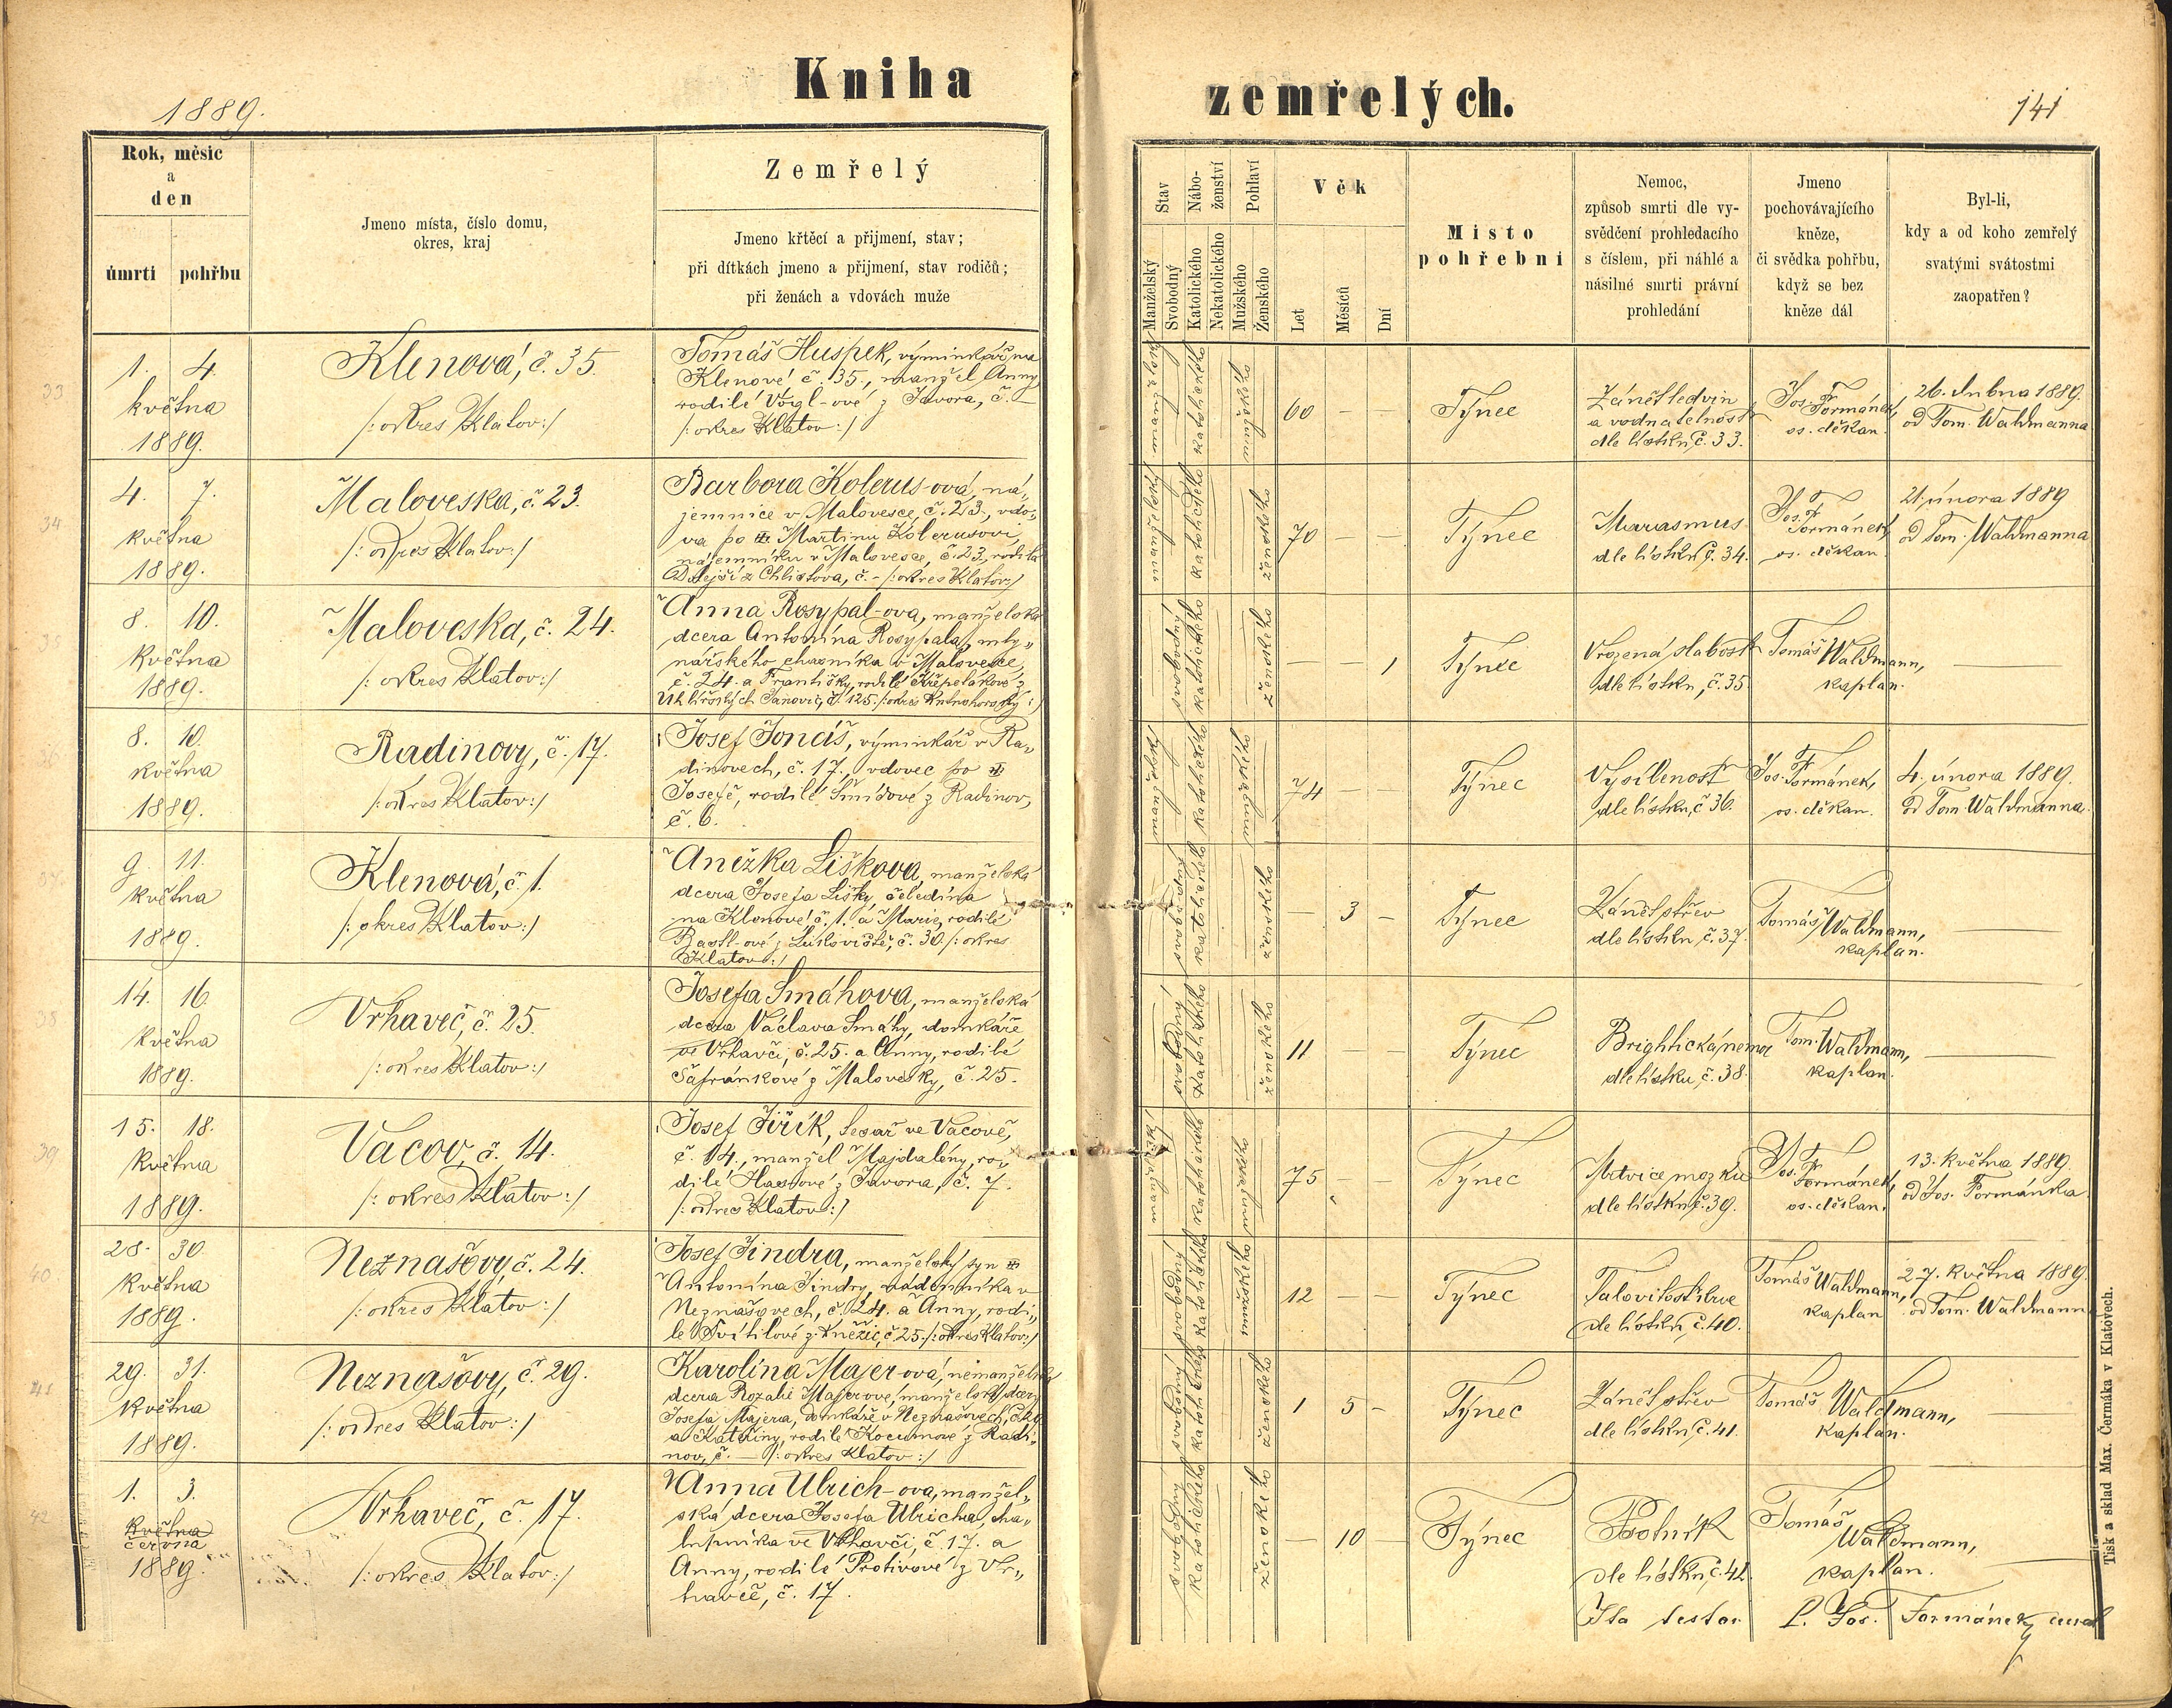 Kniha
zemřelých.
1889.
141
Rok, měsíc
a
den
úmrtí
pohřbu
Jmeno místa, číslo domu,
okres, kraj
Zemřelý
Jmeno křtěcí a přijmení, stav;
při dítkách jmeno a přijmení, stav rodičů;
při ženách a vdovách muže
Stav
Manželský
Svobodný
Nábo-
ženství
Katolického
Nekatolického
Pohlaví
Mužského
Ženského
Věk
Let
Měsíců
Dní
Místo
pohřební
Nemoc,
způsob smrti dle vy-
svědčení prohledacího
s číslem, při náhlé a
násilné smrti právní
prohledání
Jmeno
pochovávajícího
kněze,
či svědka pohřbu,
když se bez
kněze dál
Byl-li,
kdy a od koho zemřelý
svatými svátostmi
zaopatřen?
33
1. 4.
května
1889.
Klenová, č. 35.
/: okres Klatov :/
Tomáš Huspek, výminkář na
Klenové č. 35., manžel Anny
rodilé Voigl-ové z Javora, č. –
/: okres Klatov :/
katolického
mužského
60 – –
Týnec
Zánět ledvin
a vodnatelnost
dle lístku, č. 33.
Jos. Fr.
Formánek,
os. děkan.
26. dubna 1889.
od Tom. Waldmanna
34
4. 7.
května
1889.
Maloveska, č. 23.
/: okres Klatov :/
Barbora Kolerus-ová, ná„
jemnice v Malovesce, č. 23., vdo„
va po Martinu Kolerusovi,
nájemníku v Malovesce, č. 23, rodilá
z Chlistova, č. - /: okres Klatov :/
katolického
ženského
70 – –
Týnec
Marasmus
dle lístku, č. 34.
Jos. Fr.
Formánek,
os. děkan
21. února 1889
od Tom. Waldmanna
35
8. 10.
května
1889.
Maloveska, č. 24.
/: okres Klatov :/
Anna Rosypal-ova, manželská
dcera Antonína Rosypala, mly„
nářského chasníka v Malovesce,
č. 24. a Františky, rodilé Křepelákové z
Uhlířských Janovic, č. 125. /: okres Kutnohorský :/
svobodný
katolického
ženského
– – 1
Týnec
Vrozená slabost
dle lístku, č. 35.
Tomáš Waldmann,
kaplan.
36
8. 10.
května
1889.
Radinovy, č. 17.
/: okres Klatov :/
Josef Jonáš, výminkář v Ra„
dinovech, č. 17., vdovec po
Josefě, rodilé Šmídové z Radinov,
č. 6.
katolického
mužského
74 –
Týnec
Vysílenost
dle lístku, č. 36.
Jos. Fr. Formánek,
os. děkan.
4. února 1889.
Od Tom. Waldmanna.
37
9. 11.
května
1889.
Klenová, č. 1.
/: okres Klatov :/
Anežka Lišková, manželská
dcera Josefa Lišky, čeledína
na Klenové č. 1. a Marie, rodilé
Bastl-ové z Lukoviště, č. 30. /: okres
Klatov :/
svobodný
katolického
ženského
– 3 –
Týnec
Zánět střev
dle lístku, č. 37.
Tomáš Waldmann,
kaplan.
38
14. 16.
května
1889.
Vrhaveč, č. 25.
/: okres Klatov :/
Josefa Smáhova, manželská
dcera Václava Smáhy, domkáře
ve Vrhavči, č. 25. a Anny, rodilé
Šafránkové z Malovesky, č. 25.
svobodný
katolického
ženského
11 – –
Týnec
Brightická nemoc
dle lístku, č. 38.
Tom. Waldmann,
kaplan.
39
15. 18.
května
1889.
Vacov, č. 14.
/: okres Klatov :/
Josef Jiřík, tesař ve Vacově,
č. 14., manžel Majdalény, ro„
dilé Haasové z Javora, č. 7.
/: okres Klatov :/
katolického
mužského
75 – –
Týnec
Mrtvice mozku
dle lístku, č. 39.
Jos. Fr.
Formánek,
os. děkan.
13. května 1889.
od Jos. Formánka
40.
28. 30.
května
1889.
Neznašovy, č. 24.
/: okres Klatov :/
Josef Jindra, manželský syn
Antonína Jindry, nádenníka v
Neznašovech, č. 24. a Anny, rodi„
lé Svítilové z Kněžic, č. 25. /: okres Klatov :/
svobodný
katolického
mužského
12 – –
Týnec
dle lístku, č. 40.
Tomáš Waldmann,
kaplan
27. května 1889.
od Tom. Waldmanna
41
29. 31.
května
1889.
Neznašovy, č. 29.
/: okres Klatov :/
Karolína Majer-ová, nemanželská
dcera Rozalie Majerové, manželské dcery
Josefa Majera, domkáře v Neznašovech, č. 29
a Kateřiny, rodilé Kocumové z Radi„
nov, č. – /: okres Klatov :/
svobodný
katolického
ženského
1 5 –
Týnec
Zánět střev
dle lístku, č. 41.
Tomáš Waldmann,
kaplan.
42
1. 3.
května
června
1889.
Vrhaveč, č. 17.
/: okres Klatov :/
Anna Ulrich-ova, manžel„
ská dcera Josefa Ulricha, cha„
lupníka ve Vrhavči, č. 17. a
Anny, rodilé Protivové z Vr„
havče, č. 17.
svobodný
katolického
ženského
– 10 –
Týnec
Psotník
dle lístku, č. 42.
Tomáš
Waldmann,
kaplan.
Ita testor P. Jos. Formánek
Tisk a sklad Max. Čermáka v Klatovech.